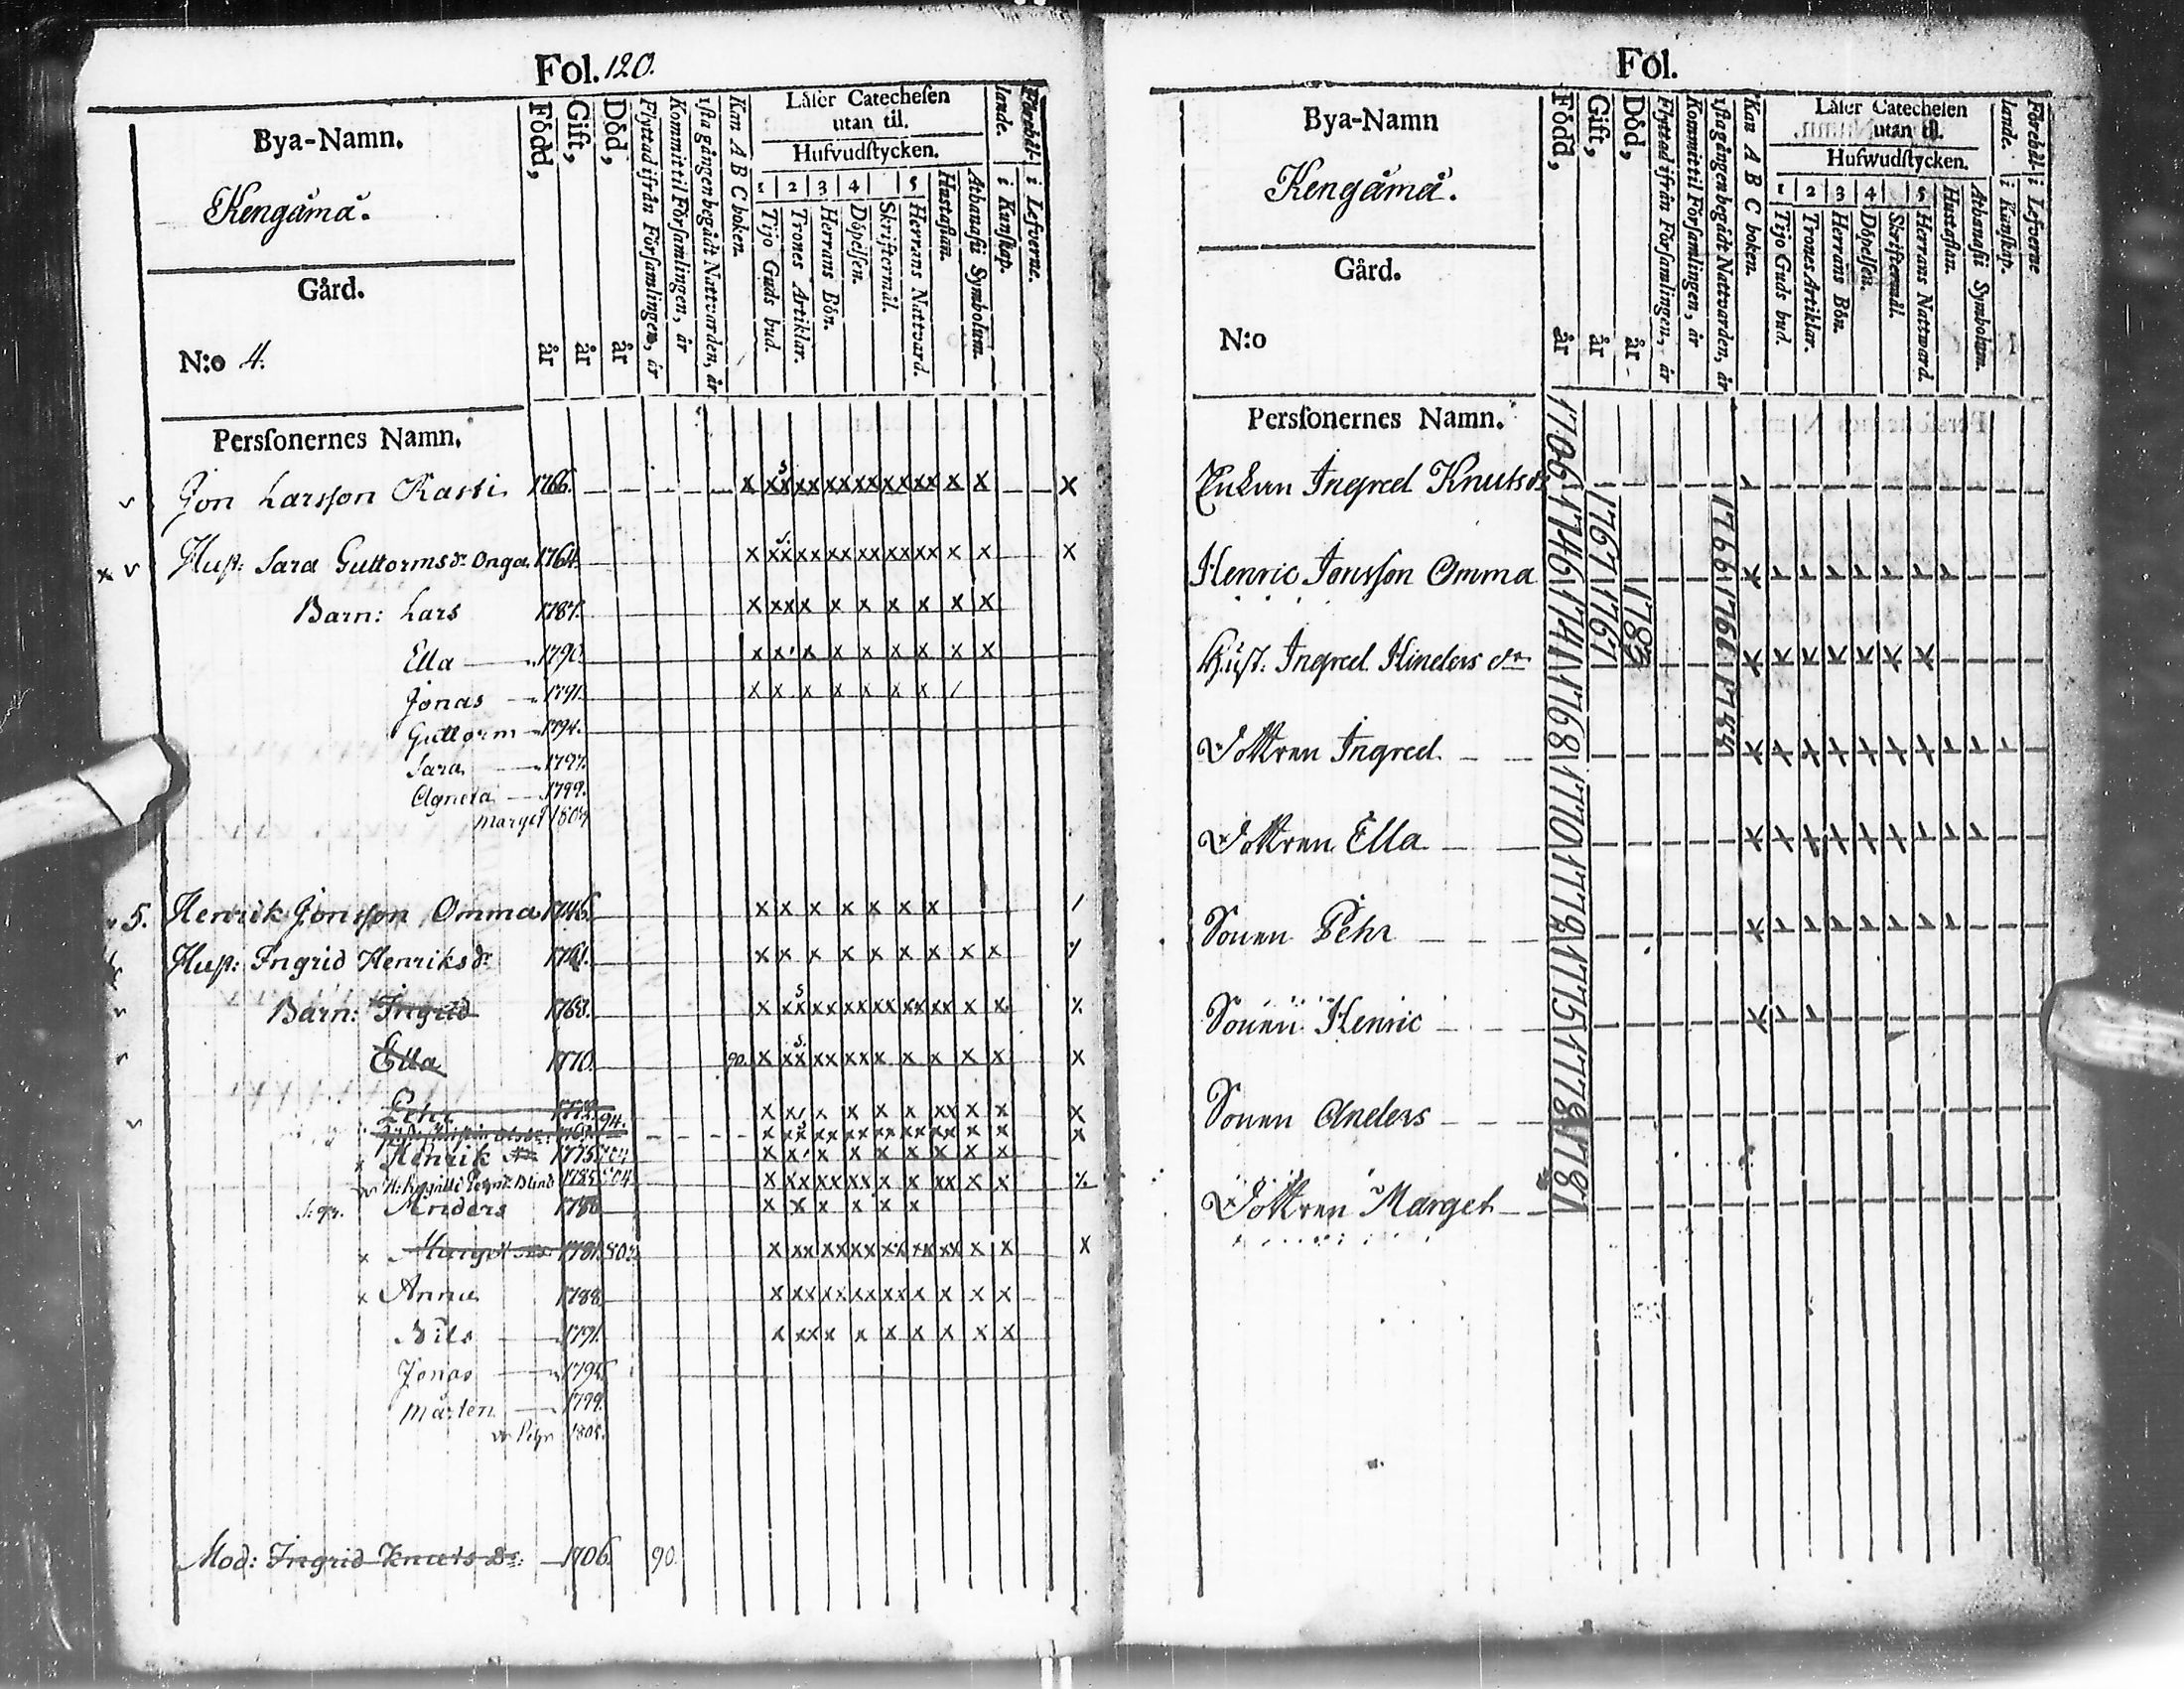 Fol. 120.
Bya-Namn.
Kengämä.
Gård.
N:o 4.
Född, år
Gift, år
Död, år
Flyttad ifrån Församlingen, år
Kommit til Församlingen, år
1sta gången begådt Nattvarden, år
Kan A B C boken.
Läser Catechesen
utan til.
Hufvudstycken.
1 2 3 4 5
Tijo Guds bud.
Trones Artiklar.
Herrans Bön.
Döpelsen.
Skriftermål.
Herrans Nattvard.
Hustaflan.
Athanasii Symbolum.
Förehål-
lande.
i Kunskap.
i Lefverne.
Personernes Namn.
Jon Larsson Rasti 1766.
Hust: Sara Guttormsdr Onga 1764.
Barn: Lars 1787.
Ella 1790.
Jonas 1791.
Guttorm 1794.
Sara 1797.
Agneta 1799.
Marget 1804
5. Henrik Jonsson Omma 1746.
Hust: Ingrid Henriksdr
Barn: Ingrid 1768.
Ella 1770. 90.
Pehr 1772. 94.
Henrik 1775
Anders
Marget 1781.
Anna 1788
Nils 1791.
Jonas 1795
Mårten 1799.
Pehr 1805.
Mod: Ingrid Knutsdr. 1706. 90.
Fol.
Bya-Namn
Kengämä.
Gård.
N:o
Född, år
Gift, år
Död, år
Flyttad ifrån Församlingen, år
Kommit til Församlingen, år
1sta gången begådt Nattvarden, år
Kan A B C boken.
Läser Catechesen
utan til.
Hufwudstycken.
1 2 3 4 5
Tijo Guds bud.
Trones Artiklar.
Herrans Bön.
Döpelsen.
Skriftermål.
Herrans Natward.
Hustaflan.
Athanasii Symbolum.
Förehål-
lande.
i Kunskap.
i Lefverne
Personernes Namn.
Enkan Ingred Knutsdr 1706
Henric Jonsson Omma 1746 1767 1766
Hust. Ingred Hindersdr 1741 1761 1783 1766
Dottren Ingred 1768
Dottren Ella 1770
Sonen Pehr 1772
Sonen Henric 1775
Sonen Anders 1778
Dottren Marget 1781